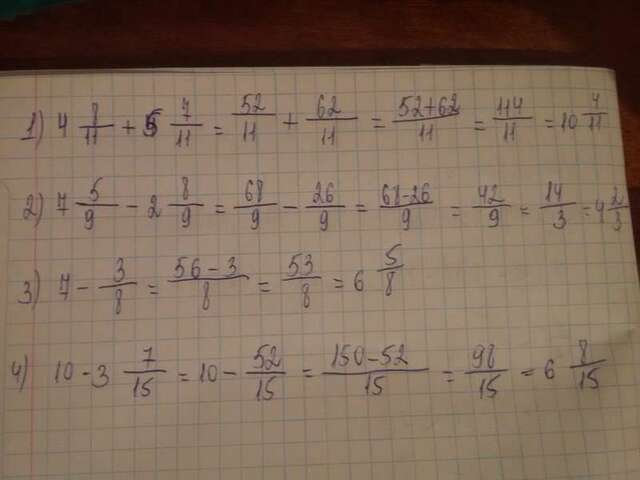 1) 4 8/11 + 5 7/11 = 52/11 + 62/11 = 52+62/11 = 114/11 = 10 4/11
2) 7 5/9 - 2 8/9 = 68/9 - 26/9 = 68-26/9 = 42/9 = 14/3 = 4 2/3
3) 7 - 3/8 = 56-3/8 = 53/8 = 6 5/8
4) 10 - 3 7/15 = 10 - 52/15 = 150-52/15 = 98/15 = 6 8/15